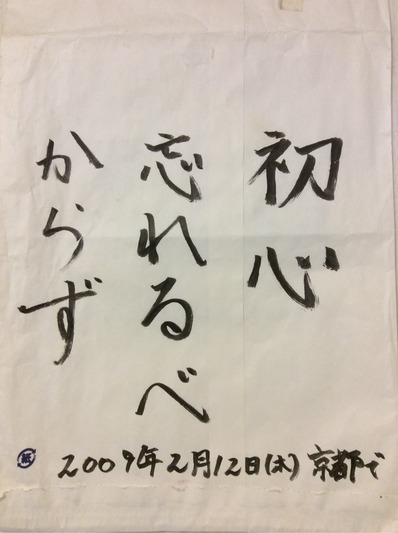 初心
忘れるべ
からず
2009年2月12日(木) 京都で
紙